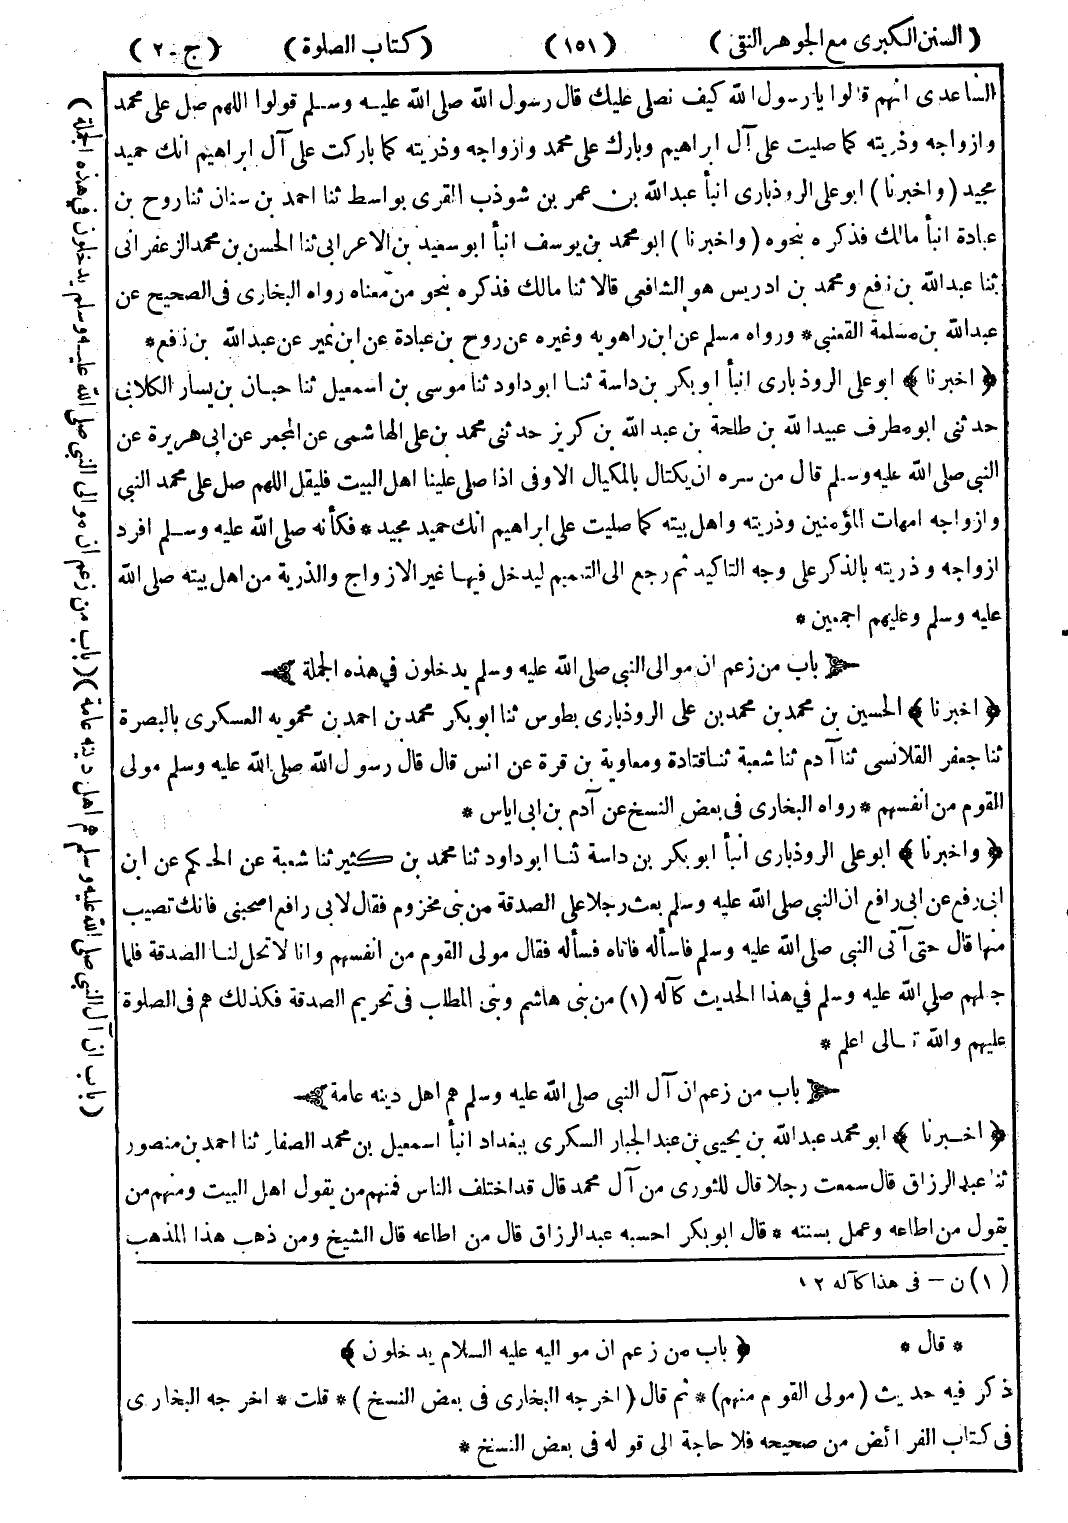 (السنن الكبرى مع الجوهر النقى) (١٥١) (كتاب الصلوة) (ج-٢)
الساعدى انهم قالوا يا رسول الله كيف نصلى عليك قال رسول الله صلى الله عليه وسلم قولوا اللهم صل على محمد
وازواجه وذريته كما صليت على آل ابراهيم وبارك على محمد وازواجه وذريته كما باركت على آل ابراهيم انك حميد
مجيد (واخبرنا) ابو على الروذبارى انبأ عبدالله بن عمر بن شوذب القرى بواسط ثنا احمد بن سنان ثنا روح بن
عبادة انبأ مالك فذكره بنحوه (واخبرنا) ابو محمد بن يوسف انبأ ابو سعيد بن الاعرابى ثنا الحسن بن محمد الزعفرانى
ثنا عبدالله بن نافع ومحمد بن ادريس هو الشافعى قالا ثنا مالك فذكره بنحو من معناه رواه البخارى فى الصحيح عن
عبدالله بن مسلمة القعنبى * ورواه مسلم عن ابن راهويه وغيره عن روح بن عبادة عن ابن نمير عن عبدالله بن نافع *
﴿ اخبرنا ﴾ ابو على الروذبارى انبأ ابو بكر بن داسة ثنا ابو داود ثنا موسى بن اسمعيل ثنا حبان بن يسار الكلابى
حدثنى ابو مطرف عبيدالله بن طلحة بن عبد الله بن كريز حدثنى محمد بن على الهاشمى عن المجمر عن ابى هريرة عن
النبى صلى الله عليه وسلم قال من سره ان يكتال بالمكيال الاوفى اذا صلى علينا اهل البيت فليقل اللهم صل على محمد النبي
وازواجه امهات المؤمنين وذريته واهل بيته كما صليت على ابراهيم انك حميد مجيد * فكأنه صلى الله عليه وسلم افرد
ازواجه وذريته بالذكر على وجه التاكيد ثم رجع الى التعميم ليدخل فيها غير الازواج والذرية من اهل بيته صلى الله
عليه وسلم وعليهم اجمعين *
باب من زعم ان موالى النبى صلى الله عليه وسلم يدخلون في هذه الجملة
﴿ اخبرنا ﴾ الحسين بن محمد بن محمد بن على الروذبارى بطوس ثنا ابو بكر محمد بن احمد بن محمويه العسكرى بالبصرة
ثنا جعفر القلانسى ثنا آدم ثنا شعبة ثنا قتادة ومعاوية بن قرة عن انس قال قال رسول الله صلى الله عليه وسلم مولى
القوم من انفسهم * رواه البخارى فى بعض النسخ عن آدم بن ابى اياس *
﴿ واخبرنا ﴾ ابو على الروذبارى انبأ ابو بكر بن داسة ثنا ابو داود ثنا محمد بن كثير ثنا شعبة عن الحكم عن ابن
ابى رافع عن ابى رافع ان النبى صلى الله عليه وسلم بعث رجلا على الصدقة من بنى مخزوم فقال لابى رافع اصحبنى فانك تصيب
منها قال حتى آتى النبى صلى الله عليه وسلم فاسأله فاتاه فسأله فقال مولى القوم من انفسهم وانا لا تحل لنا الصدقة فلما
جعلهم صلى الله عليه وسلم في هذا الحديث كآله (١) من بنى هاشم وبنى المطلب فى تحريم الصدقة فكذلك هم فى الصلوة
عليهم والله تعالى اعلم *
باب من زعم ان آل النبى صلى الله عليه وسلم هم اهل دينه عامة
﴿ اخبرنا ﴾ ابو محمد عبدالله بن يحيى بن عبد الجبار السكرى ببغداد انبأ اسمعيل بن محمد الصفار ثنا احمد بن منصور
ثنا عبد الرزاق قال سمعت رجلا قال للثورى من آل محمد قال قد اختلف الناس فمنهم من يقول اهل البيت ومنهم من
يقول من اطاعه وعمل بسنته * قال ابو بكر احسبه عبد الرزاق قال من اطاعه قال الشيخ ومن ذهب هذا المذهب
(١) ن - فى هذا كآله ١٢
* قال * ﴿ باب من زعم ان مواليه عليه السلام يدخلون ﴾
ذكر فيه حديث (مولى القوم منهم) * ثم قال (اخرجه البخارى فى بعض النسخ) * قلت * اخرجه البخارى
فى كتاب الفرائض من صحيحه فلا حاجة الى قوله فى بعض النسخ *
(باب من زعم ان موالى النبى صلى الله عليه وسلم يدخلون في هذه الجملة)
(باب ان آل النبى صلى الله عليه وسلم هم اهل دينه عامة)